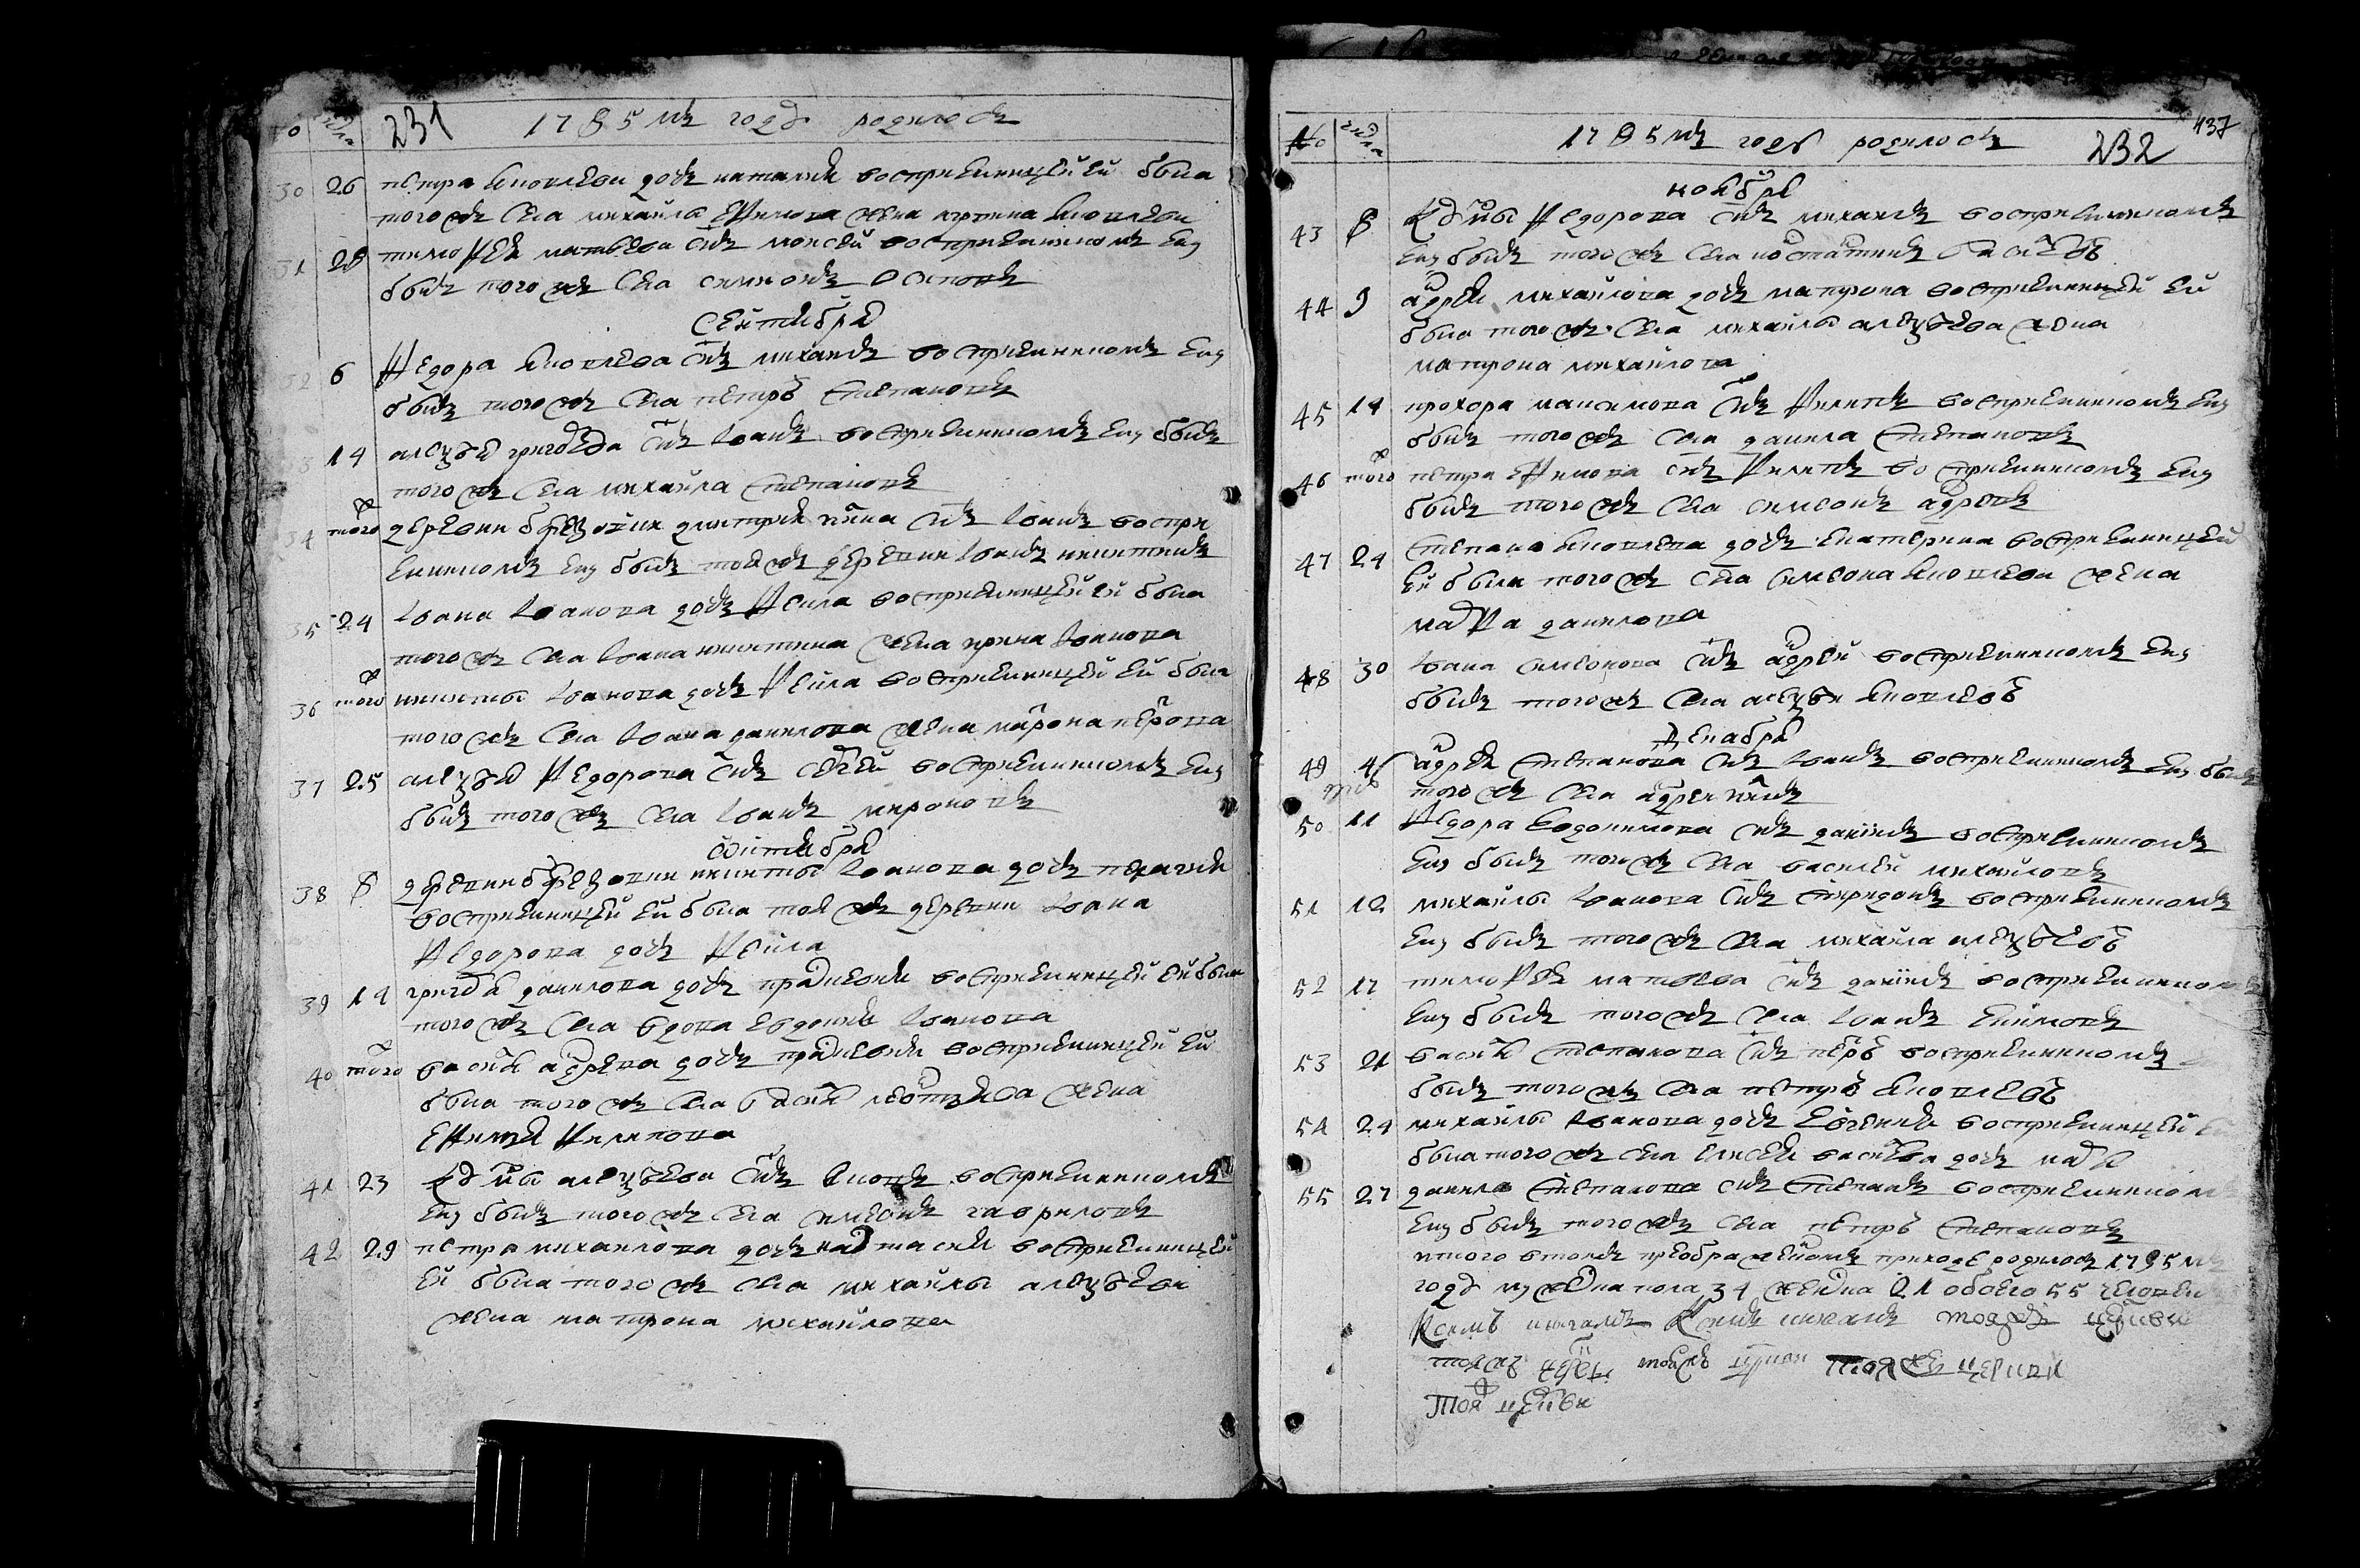 231
1785 мъ году родилось
30 26 петра Яковлева дочь наталия восприемницей ей была
того жъ села михаилы ефимова жена ирина Яковлева
31 28 тимофея матвеева снъ моисей восприемникомъ ему
былъ того жъ села симионъ осиповъ
сентября
6 Федора Яковлева снъ михаилъ восприемникомъ ему
былъ того жъ села петръ степановъ
14 алеѯѣя григорева снъ Iванъ восприемникомъ ему былъ
того жъ села михайла степановъ
34 того ж деревни березовки дмитрия снъ Iванъ воспри
емникомъ ему былъ тоя жъ деревни Iванъ никитинъ
35 24 Iвана Iванова дочь Фекла восприемницей ей была
того жъ села Iвана никитина жена ирина Iванова
36 того ж никиты Iванова дочь Фекла восприемницей ей была
того жъ села Iвана данилова жена петрова
37 25 алеѯѣя Федорова снъ сергей восприемникомъ ему
былъ того жъ села Iванъ мироновъ
октября
38 8 деревни березовки никиты Iванова дочь пелагия
восприемницей ей была тоя жъ деревни Iвана
Федорова дочь Фекла
39 14 григоря данилова дочь прасковя восприемницей ей была
того жъ села вдова евдокия Iванова
40 того ж васия андреева дочь прасковя восприемницей ей
была того жъ села жена
ефимия Филипова
41 23 кузмы алеѯѣева снъ Яковъ восприемникомъ
ему былъ того жъ села симеонъ гавриловъ
42 29 петра михаилова дочь настасия восприемницей
ей была того жъ села михайлы алеѯѣева
жена матрона михайлова
№ числа 1785 мъ году родилось 232 437
ноября
43 8 кузмы Федорова снъ михаилъ восприемникомъ
ему былъ того жъ села
44 9 андрея михайлова дочь матрона восприемницей ей
была того жъ села михайлы алеѯѣева жена
матрона михайлова
45 14 прохора максимова снъ Филипъ восприемникомъ ему
былъ того жъ села данила степановъ
46 того ж петра ефимова снъ Филипъ восприемникомъ ему
былъ того жъ села симеонъ андревъ
47 24 степана Яковлева дочь екатерина восприемницей
ей была того жъ села симеона Яковлева жена
марфа данилова
48 30 Iвана симеонова снъ андрей восприемникомъ ему
былъ того жъ села алеѯѣй Яковлевъ
декабря
49 4 андрея степанова снъ Iванъ восприемникомъ ему былъ
того жъ села андреи
50 11 Федора снъ даниилъ восприемникомъ
ему былъ того жъ села василей михайловъ
51 12 михайлы Iванова снъ спиридонъ восприемникомъ
ему былъ того жъ села михайла алеѯѣевъ
52 17 тимофея матвеева снъ даниилъ восприемникомъ
ему былъ того жъ села Iванъ екимовъ
53 21 васия степанова снъ петръ восприемникомъ
былъ того жъ села петръ Яковлевъ
54 24 михайлы Iванова дочь евгения восприемницей
была того жъ села елисея дочь марфа
55 27 данила степанова снъ степанъ восприемникомъ
ему былъ того жъ села петръ степановъ
итого в томъ преображенскомъ приходе родилось 1785 мъ
году мужска пола 34 женска 21 обоего 55 человек
тоя жъ церкви
тоя жъ церкви
тоя церкви